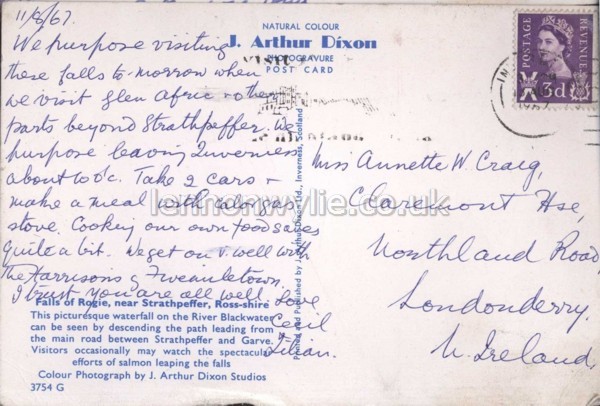 11/8/67.
We purpose visiting
these falls to-morrow when
we visit Glen Afric & other
parts beyond Strathpeffer. We
purpose leaving Inverness
about 10 o'c. Take 2 cars &
make a meal with calor gas
stove. Cooking our own food saves
quite a bit. We get on v. well with
the Harrisons of Fivemiletown.
I trust you are all well. Love
Cecil
Lilian.
NATURAL COLOUR
J. Arthur Dixon
PHOTOGRAVURE
POST CARD
VISIT
POSTAGE
REVENUE
3d
Miss Annette W. Craig,
Claremont Hse,
Northland Road,
Londonderry.
N. Ireland.
Printed and Published by J. Arthur Dixon Ltd., Inverness, Scotland
lennonwylie.co.uk
Falls of Rogie, near Strathpeffer, Ross-shire
This picturesque waterfall on the River Blackwater
can be seen by descending the path leading from
the main road between Strathpeffer and Garve.
Visitors occasionally may watch the spectacular
efforts of salmon leaping the falls
Colour Photograph by J. Arthur Dixon Studios
3754 G